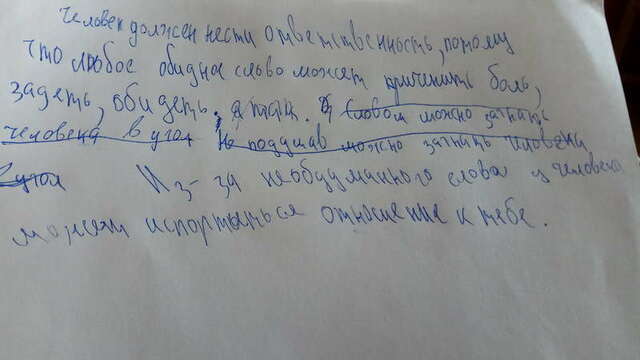 Человек должен нести ответственность, потому
что любое обидное слово может приченить боль,
задеть, обидеть. Словом можно загнать
человека в угол Не подумав можно загнать человека
в угол Из-за необдуманного слова у человека
может испортиться отношение к тебе.